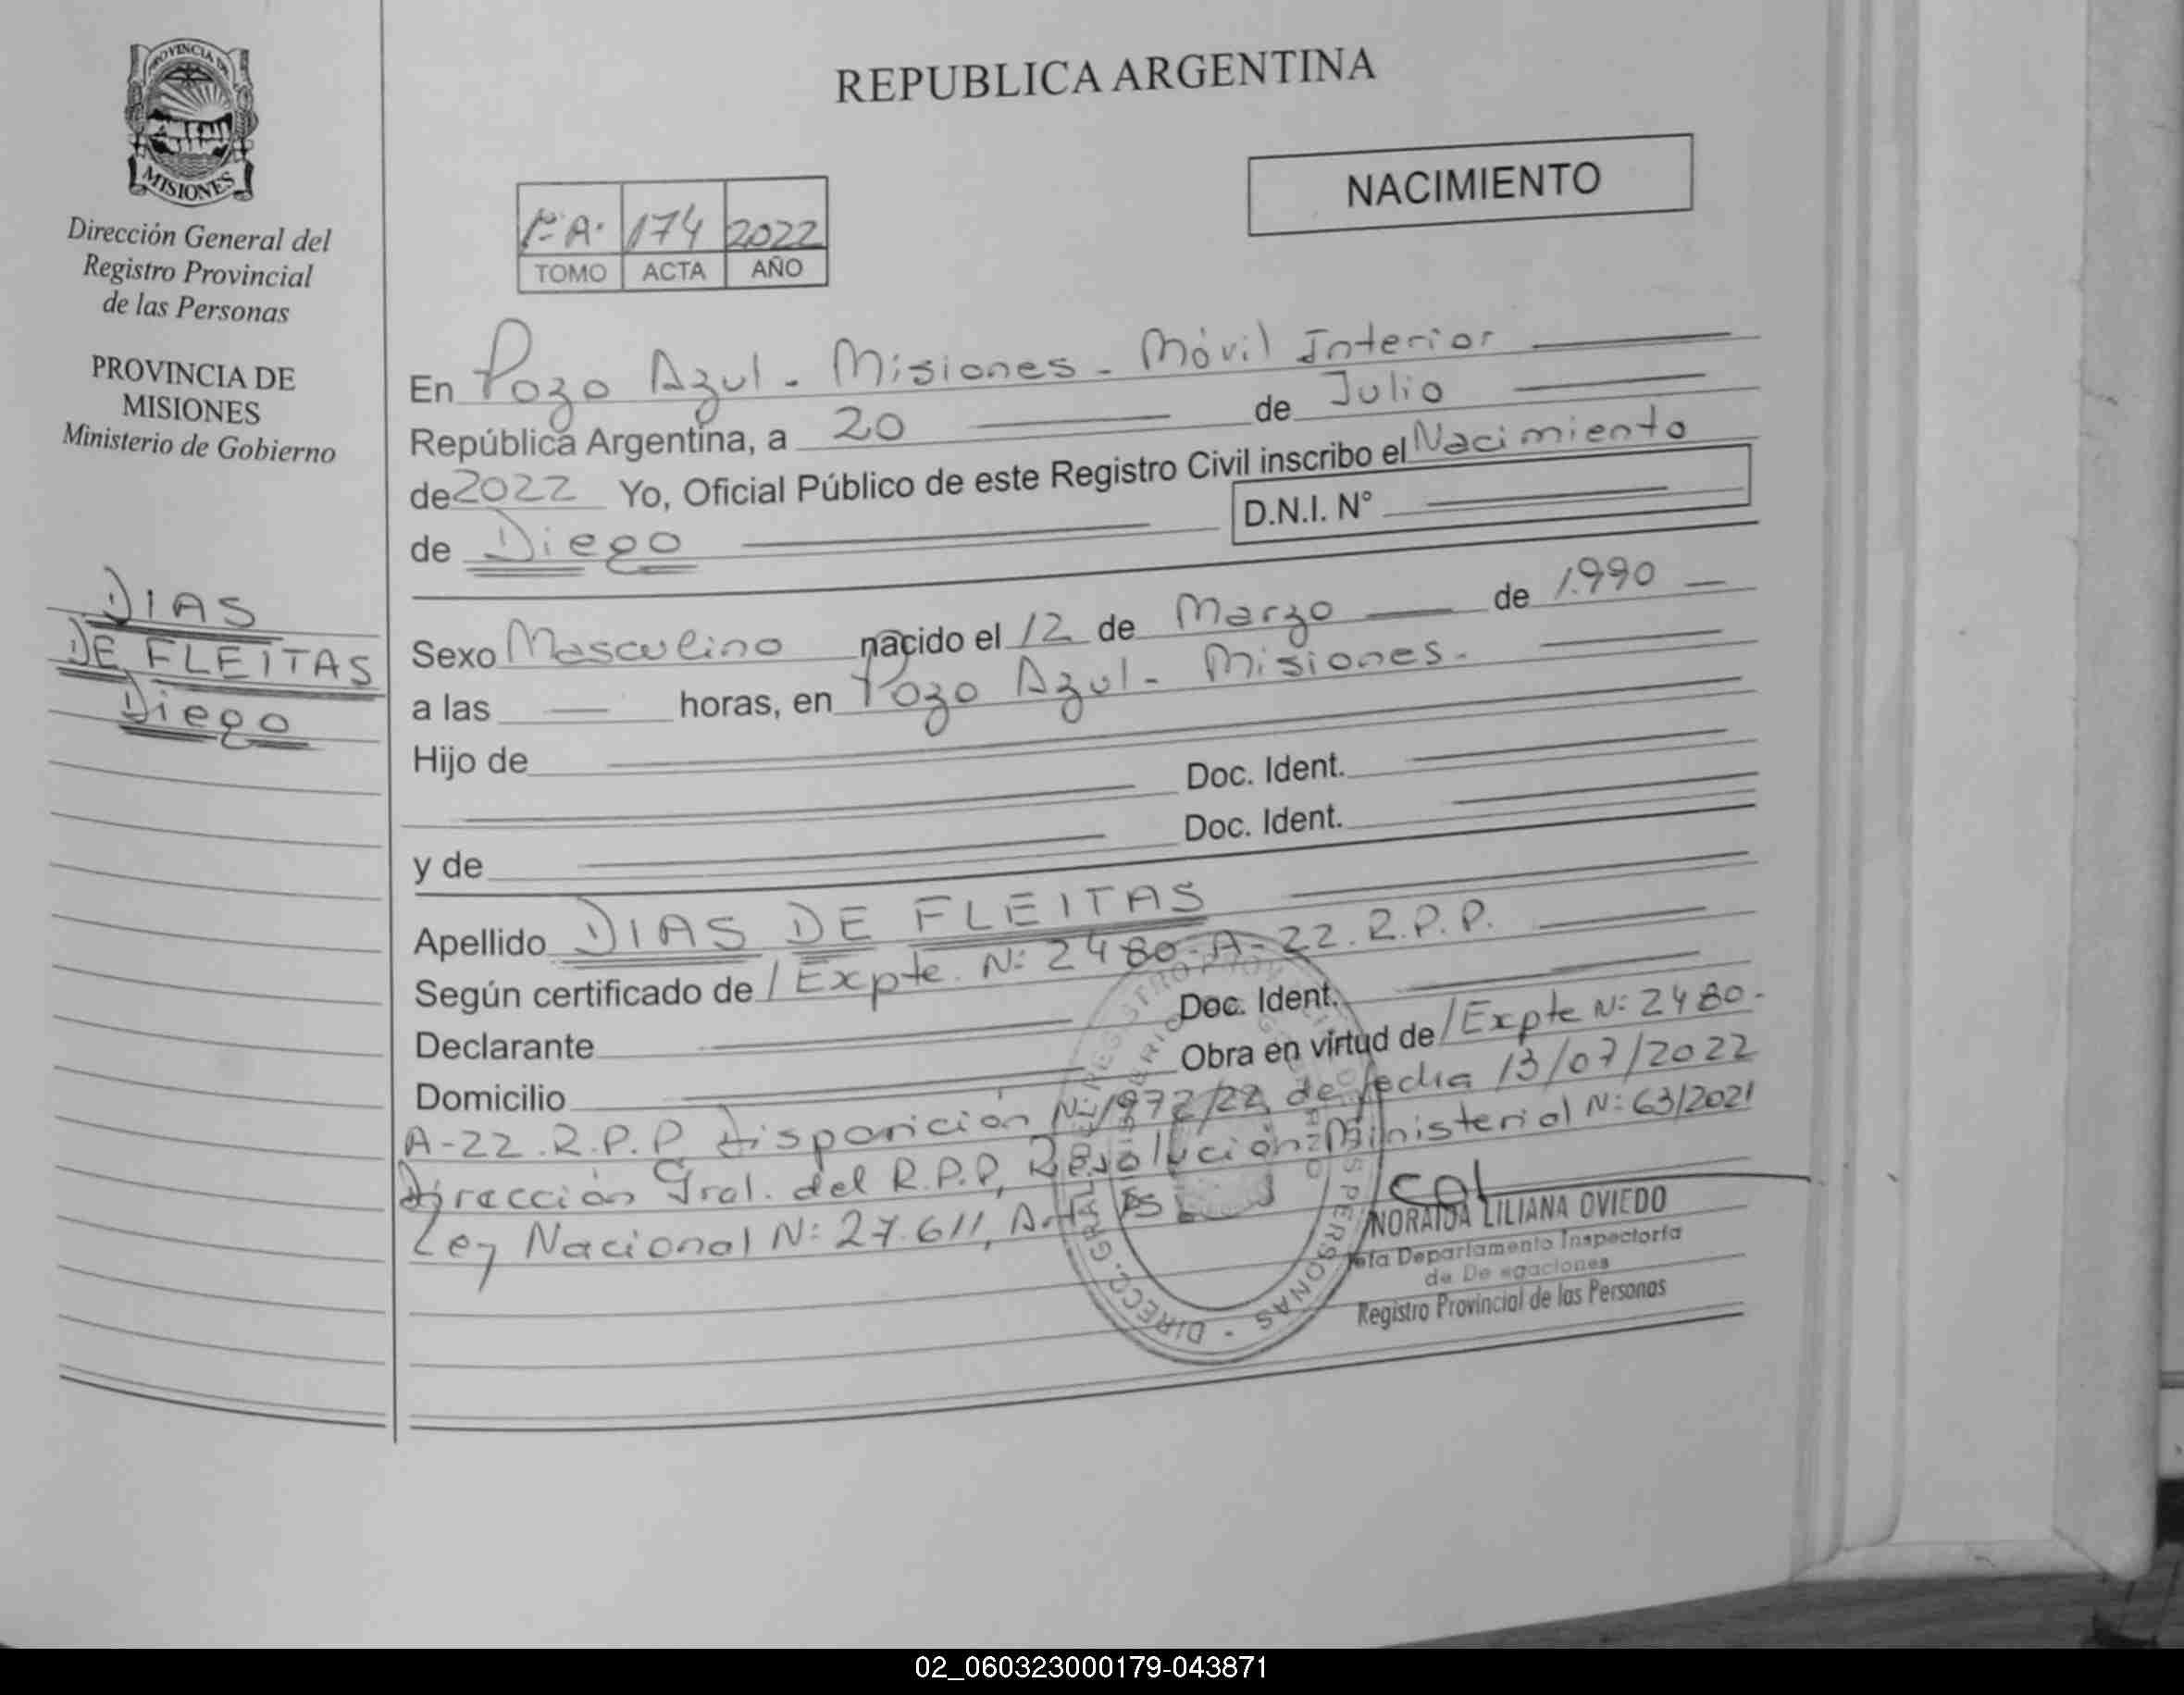 PROVINCIA DE
MISIONES
Dirección General del
Registro Provincial
de las Personas
PROVINCIA DE
MISIONES
Ministerio de Gobierno
DIAS
DE FLEITAS
Diego
REPUBLICA ARGENTINA
NACIMIENTO
1º A. 174 2022
TOMO ACTA AÑO
En Pozo Azul - Misiones - Móvil Interior
República Argentina, a 20 de Julio
de 2022 Yo, Oficial Público de este Registro Civil inscribo el Nacimiento
de Diego D.N.I. N°
Sexo Masculino nacido el 12 de Marzo de 1.990
a las horas, en Pozo Azul - Misiones.
Hijo de
Doc. Ident.
y de Doc. Ident.
Apellido DIAS DE FLEITAS
Según certificado de / Expte. N: 2480-A-22. R.P.P.
Declarante Doc. Ident.
Domicilio Obra en virtud de / Expte N: 2480-
A-22.R.P.P. Disposición N: 1972/22, de fecha 13/07/2022
Dirección Gral. del R.P.P, Resolución Ministerial N: 63/2021
Ley Nacional N: 27.611, Art.
DIRECC. GRAL DEL REGISTRO PROV. DE LAS PERSONAS -
NORAIDA LILIANA OVIEDO
Jefa Departamento Inspectoría
de Delegaciones
Registro Provincial de las Personas
02_060323000179-043871